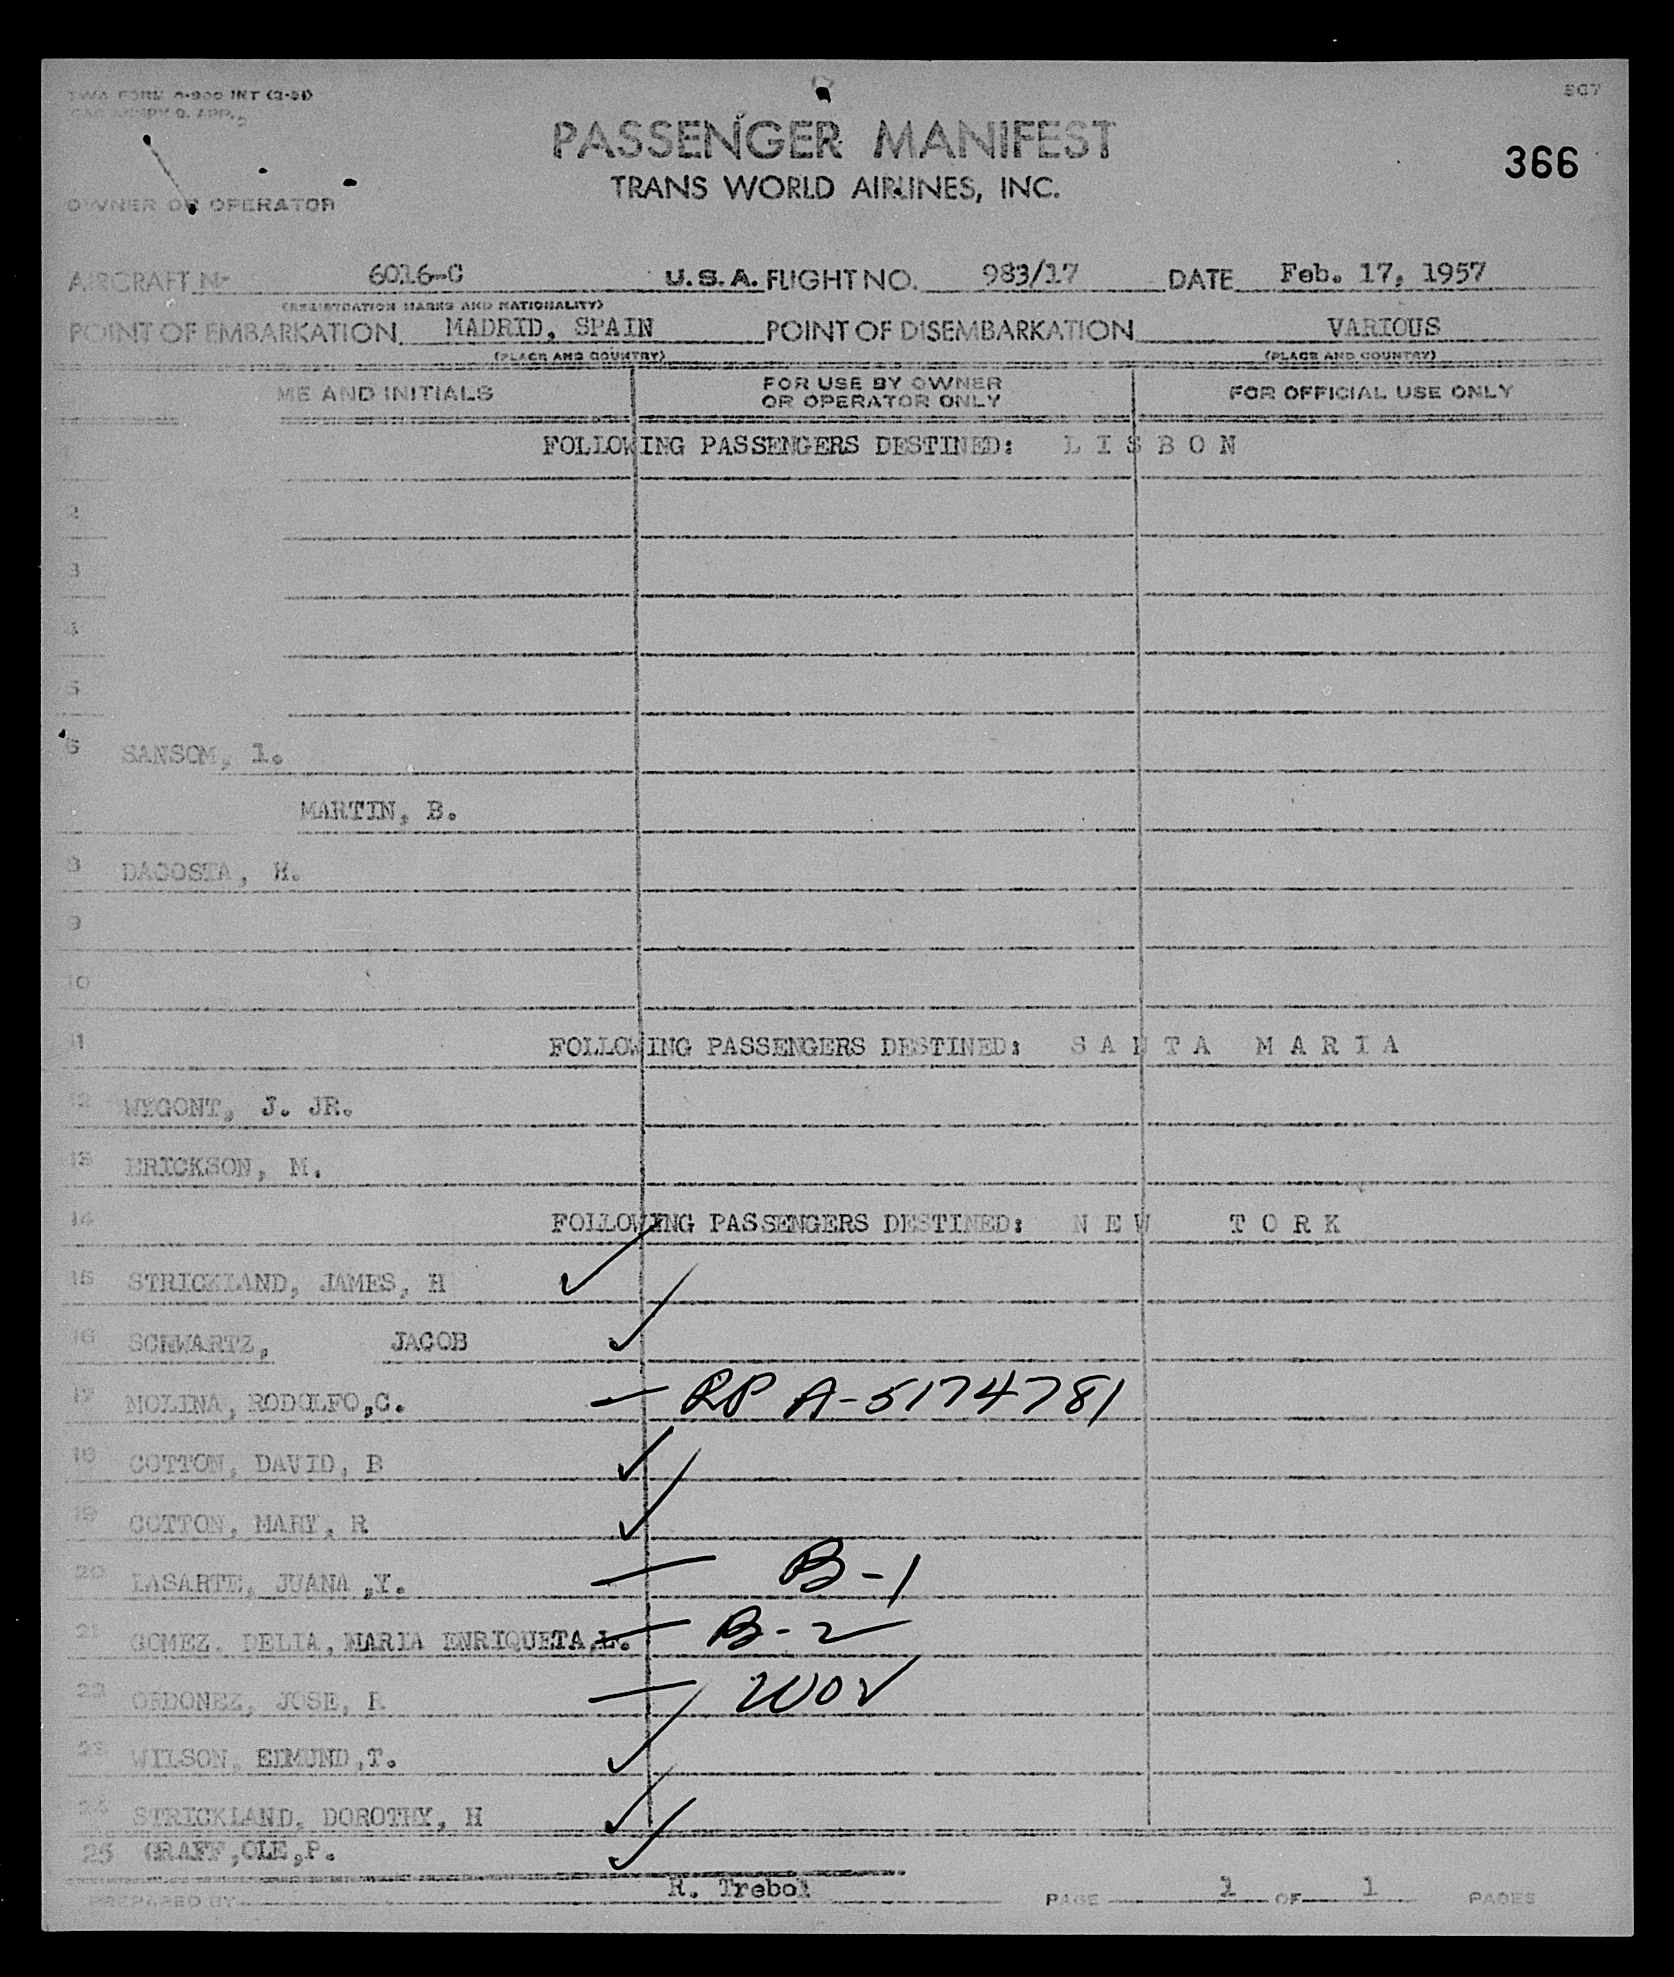 TWA FORM O-900 INT (2-51)
507
PASSENGER MANIFEST
366
TRANS WORLD AIRLINES, INC.
OWNER OR OPERATOR
AIRCRAFT No 6016-C U.S.A. FLIGHT NO. 983/17 DATE Feb. 17, 1957
(REGISTRATION MARKS AND NATIONALITY)
POINT OF EMBARKATION MADRID, SPAIN POINT OF DISEMBARKATION VARIOUS
(PLACE AND COUNTRY) (PLACE AND COUNTRY)
ME AND INITIALS FOR USE BY OWNER OR OPERATOR ONLY FOR OFFICIAL USE ONLY
FOLLOWING PASSENGERS DESTINED: L I S B O N
2
3
4
5
6 SANSOM, l.
MARTIN, B.
8 DACOSTA, H.
9
10
11 FOLLOWING PASSENGERS DESTINED: S A N T A M A R I A
12 WYGONT, J. JR.
13 ERICKSON, M.
14 FOLLOWING PASSENGERS DESTINED: N E W T O R K
15 STRICKLAND, JAMES, H ✓
16 SCHWARTZ, JACOB ✓
17 MOLINA, RODOLFO,C. — RP A-5174781
18 COTTON, DAVID, B ✓
19 COTTON, MARY, R ✓
20 LASARTE, JUANA ,Y. — B-1
21 GOMEZ. DELIA, MARIA ENRIQUETA,L. — B-2
22 ORDONEZ, JOSE, R — WOV
23 WILSON, EDMUND,T. ✓
24 STRICKLAND, DOROTHY, H ✓
25 GRAFF,OLE,P. ✓
PREPARED BY R. Trebol PAGE 1 OF 1 PAGES